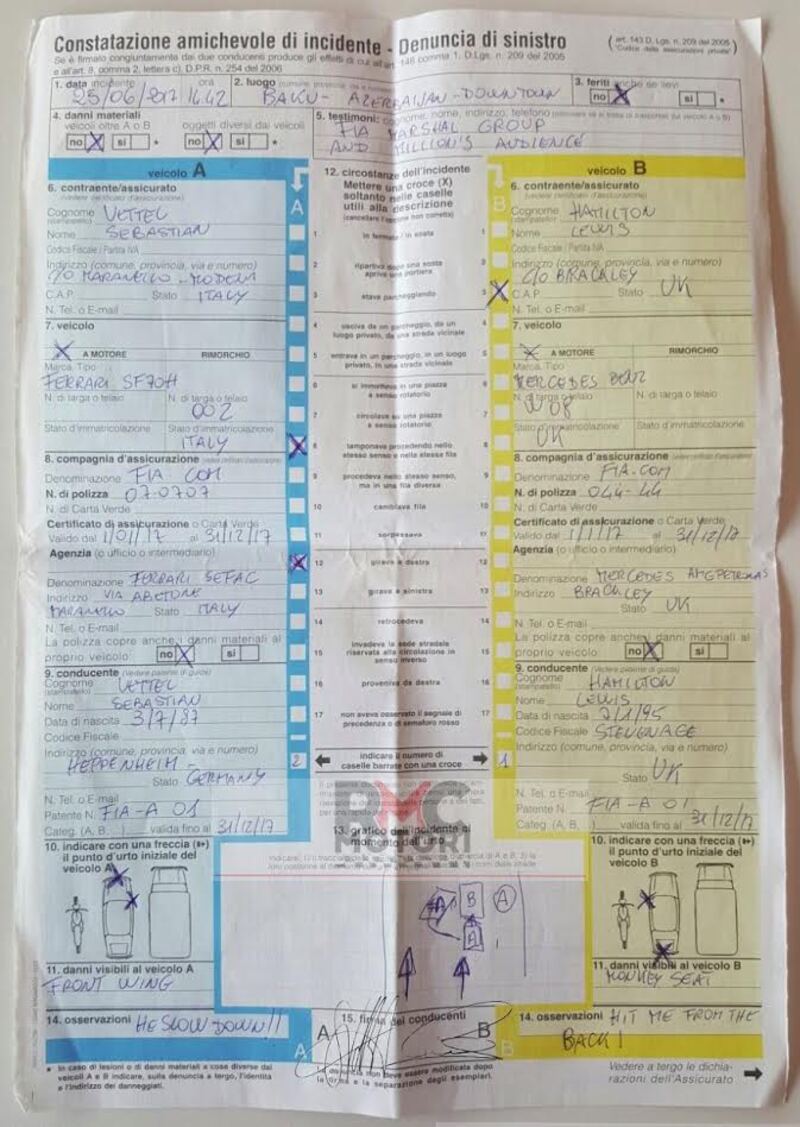 Constatazione amichevole di incidente - Denuncia di sinistro
(art. 143 D. Lgs. n. 209 del 2005
"Codice delle assicurazioni private")
Se è firmato congiuntamente dai due conducenti produce gli effetti di cui all'art. 148 comma 1, D.Lgs. n. 209 del 2005
e all'art. 8, comma 2, lettera c), D.P.R. n. 254 del 2006
1. data incidente ora 2. luogo (comune, provincia, via e numero) 3. feriti anche se lievi
25/06/2017 16.42 BAKU - AZERBAIJAN - DOWNTOWN no X si *
4. danni materiali
veicoli oltre A o B oggetti diversi dai veicoli
no X si * no X si *
5. testimoni: cognome, nome, indirizzo, telefono
FIA MARSHAL GROUP
AND MILLION'S AUDIENCE
veicolo A
6. contraente/assicurato
(vedere certificato d'assicurazione)
Cognome VETTEL
(stampatello)
Nome SEBASTIAN
Codice Fiscale / Partita IVA
Indirizzo (comune, provincia, via e numero)
C/O MARANELLO - MODENA
C.A.P. Stato ITALY
N. Tel. o E-mail
7. veicolo
X A MOTORE RIMORCHIO
Marca, Tipo
FERRARI SF70H
N. di targa o telaio N. di targa o telaio
002
Stato d'immatricolazione Stato d'immatricolazione
ITALY
8. compagnia d'assicurazione (vedere certificato d'assicurazione)
Denominazione FIA. COM
N. di polizza 07-0707
N. di Carta Verde
Certificato di assicurazione o Carta Verde
Valido dal 1/01/17 al 31/12/17
Agenzia (o ufficio o intermediario)
Denominazione FERRARI SEFAC
Indirizzo VIA ABETONE
MARANELLO Stato ITALY
N. Tel. o E-mail
La polizza copre anche i danni materiali al
proprio veicolo: no X si
9. conducente (Vedere patente di guida)
Cognome VETTEL
(stampatello)
Nome SEBASTIAN
Data di nascita 3/7/87
Codice Fiscale
Indirizzo (comune, provincia, via e numero)
HEPPENHEIM -
Stato GERMANY
N. Tel. o E-mail
Patente N. FIA-A 01
Categ. (A, B, ) valida fino al 31/12/17
10. indicare con una freccia
il punto d'urto iniziale del
veicolo A
11. danni visibili al veicolo A
FRONT WING
14. osservazioni HE SLOW DOWN!!
A
12. circostanze dell'incidente
Mettere una croce (X)
soltanto nelle caselle
utili alla descrizione
(cancellare l'opzione non corretta)
A B
1 in fermata / in sosta 1
2 ripartiva dopo una sosta 2
apriva una portiera
3 stava parcheggiando 3 X
4 usciva da un parcheggio, da un 4
luogo privato, da una strada vicinale
5 entrava in un parcheggio, in un luogo 5
privato, in una strada vicinale
6 si immetteva in una piazza 6
a senso rotatorio
7 circolava su una piazza 7
a senso rotatorio
X 8 tamponava procedendo nello 8
stesso senso e nella stessa fila
9 procedeva nello stesso senso, 9
ma in una fila diversa
10 cambiava fila 10
11 sorpassava 11
X 12 girava a destra 12
13 girava a sinistra 13
14 retrocedeva 14
15 invadeva la sede stradale 15
riservata alla circolazione in
senso inverso
16 proveniva da destra 16
17 non aveva osservato il segnale di 17
precedenza o di semaforo rosso
2 indicare il numero di 1
caselle barrate con una croce
RMC
MOTORI
13. grafico dell'incidente al
momento dell'urto
A B A
A
15. firma dei conducenti
A B
veicolo B
6. contraente/assicurato
(vedere certificato d'assicurazione)
Cognome HAMILTON
(stampatello)
Nome LEWIS
Codice Fiscale / Partita IVA
Indirizzo (comune, provincia, via e numero)
C/O BRACKLEY
C.A.P. Stato UK
N. Tel. o E-mail
7. veicolo
X A MOTORE RIMORCHIO
Marca, Tipo
MERCEDES BENZ
N. di targa o telaio N. di targa o telaio
W 08
Stato d'immatricolazione Stato d'immatricolazione
UK
8. compagnia d'assicurazione (vedere certificato d'assicurazione)
Denominazione FIA.COM
N. di polizza 044-44
N. di Carta Verde
Certificato di assicurazione o Carta Verde
Valido dal 1/1/17 al 31/12/17
Agenzia (o ufficio o intermediario)
Denominazione MERCEDES AMG PETRONAS
Indirizzo BRACKLEY
Stato UK
N. Tel. o E-mail
La polizza copre anche i danni materiali al
proprio veicolo: no X si
9. conducente (Vedere patente di guida)
Cognome HAMILTON
(stampatello)
Nome LEWIS
Data di nascita 7/1/95
Codice Fiscale STEVENAGE
Indirizzo (comune, provincia, via e numero)
Stato UK
N. Tel. o E-mail
Patente N. FIA-A 01
Categ. (A, B, ) valida fino al 31/12/17
10. indicare con una freccia
il punto d'urto iniziale del
veicolo B
11. danni visibili al veicolo B
MONKEY SEAT
14. osservazioni HIT ME FROM THE
BACK!
B
* In caso di lesioni o di danni materiali a cose diverse dai
veicoli A e B indicare, sulla denuncia a tergo, l'identità
e l'indirizzo dei danneggiati.
non deve essere modificata dopo
la firma e la separazione degli esemplari.
Vedere a tergo le dichia-
razioni dell'Assicurato